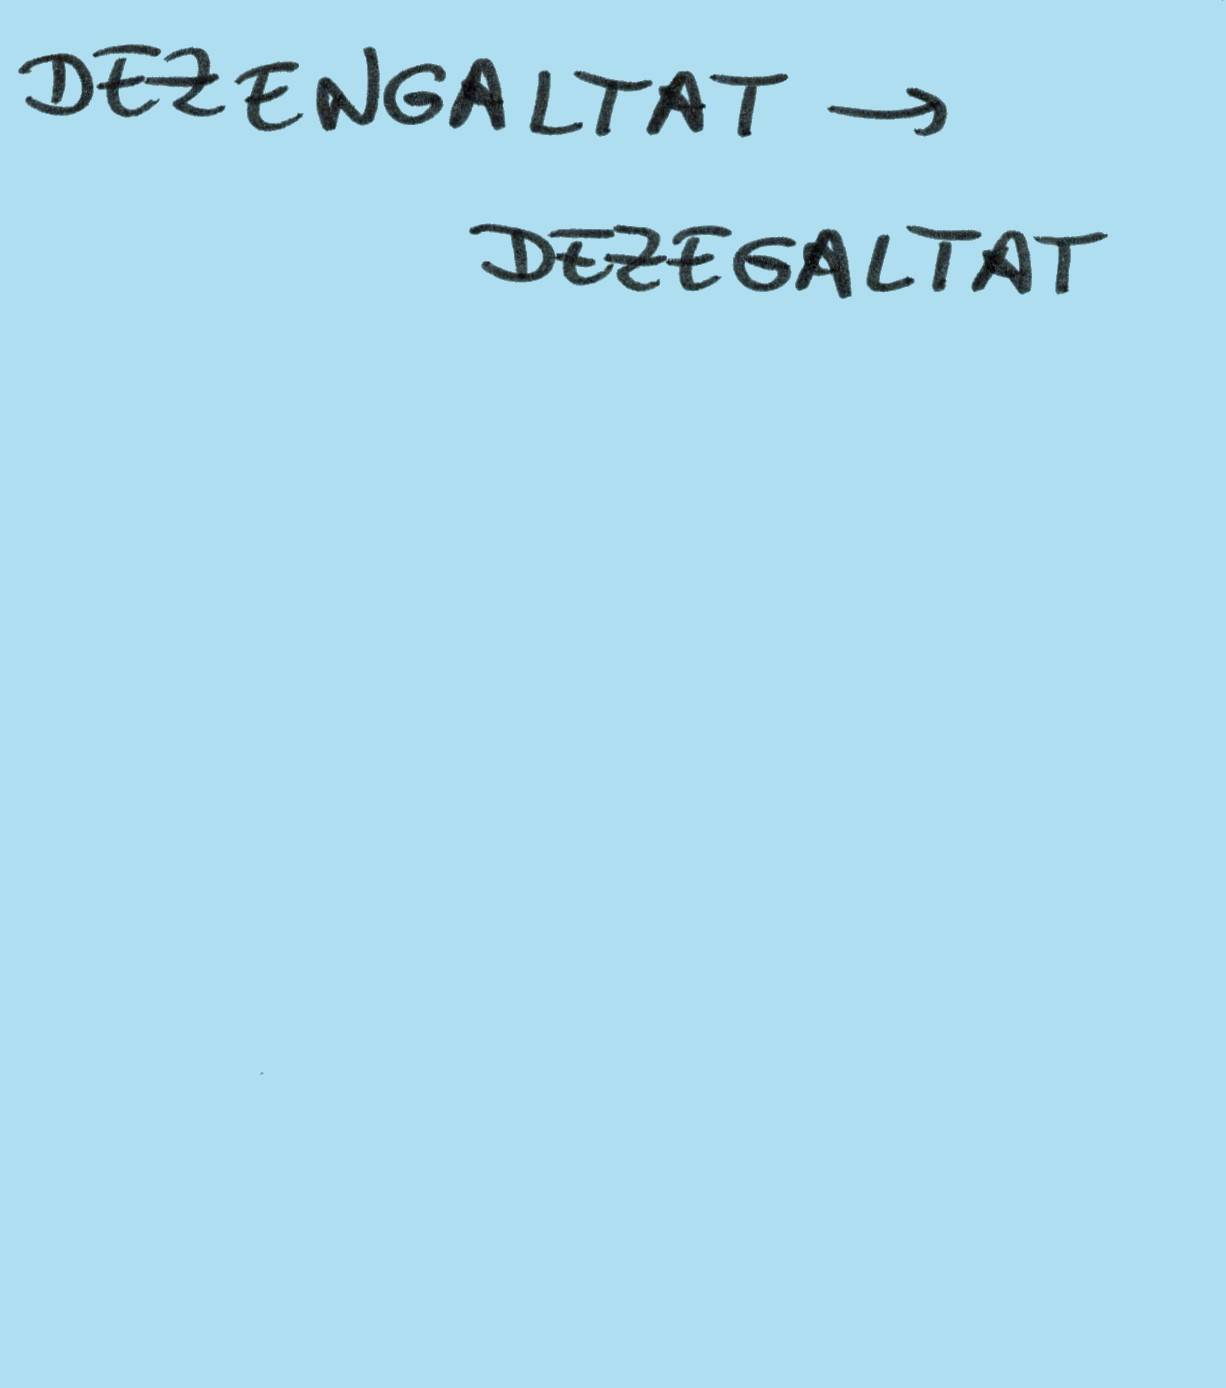 DEZENGALTAT →
DEZEGALTAT